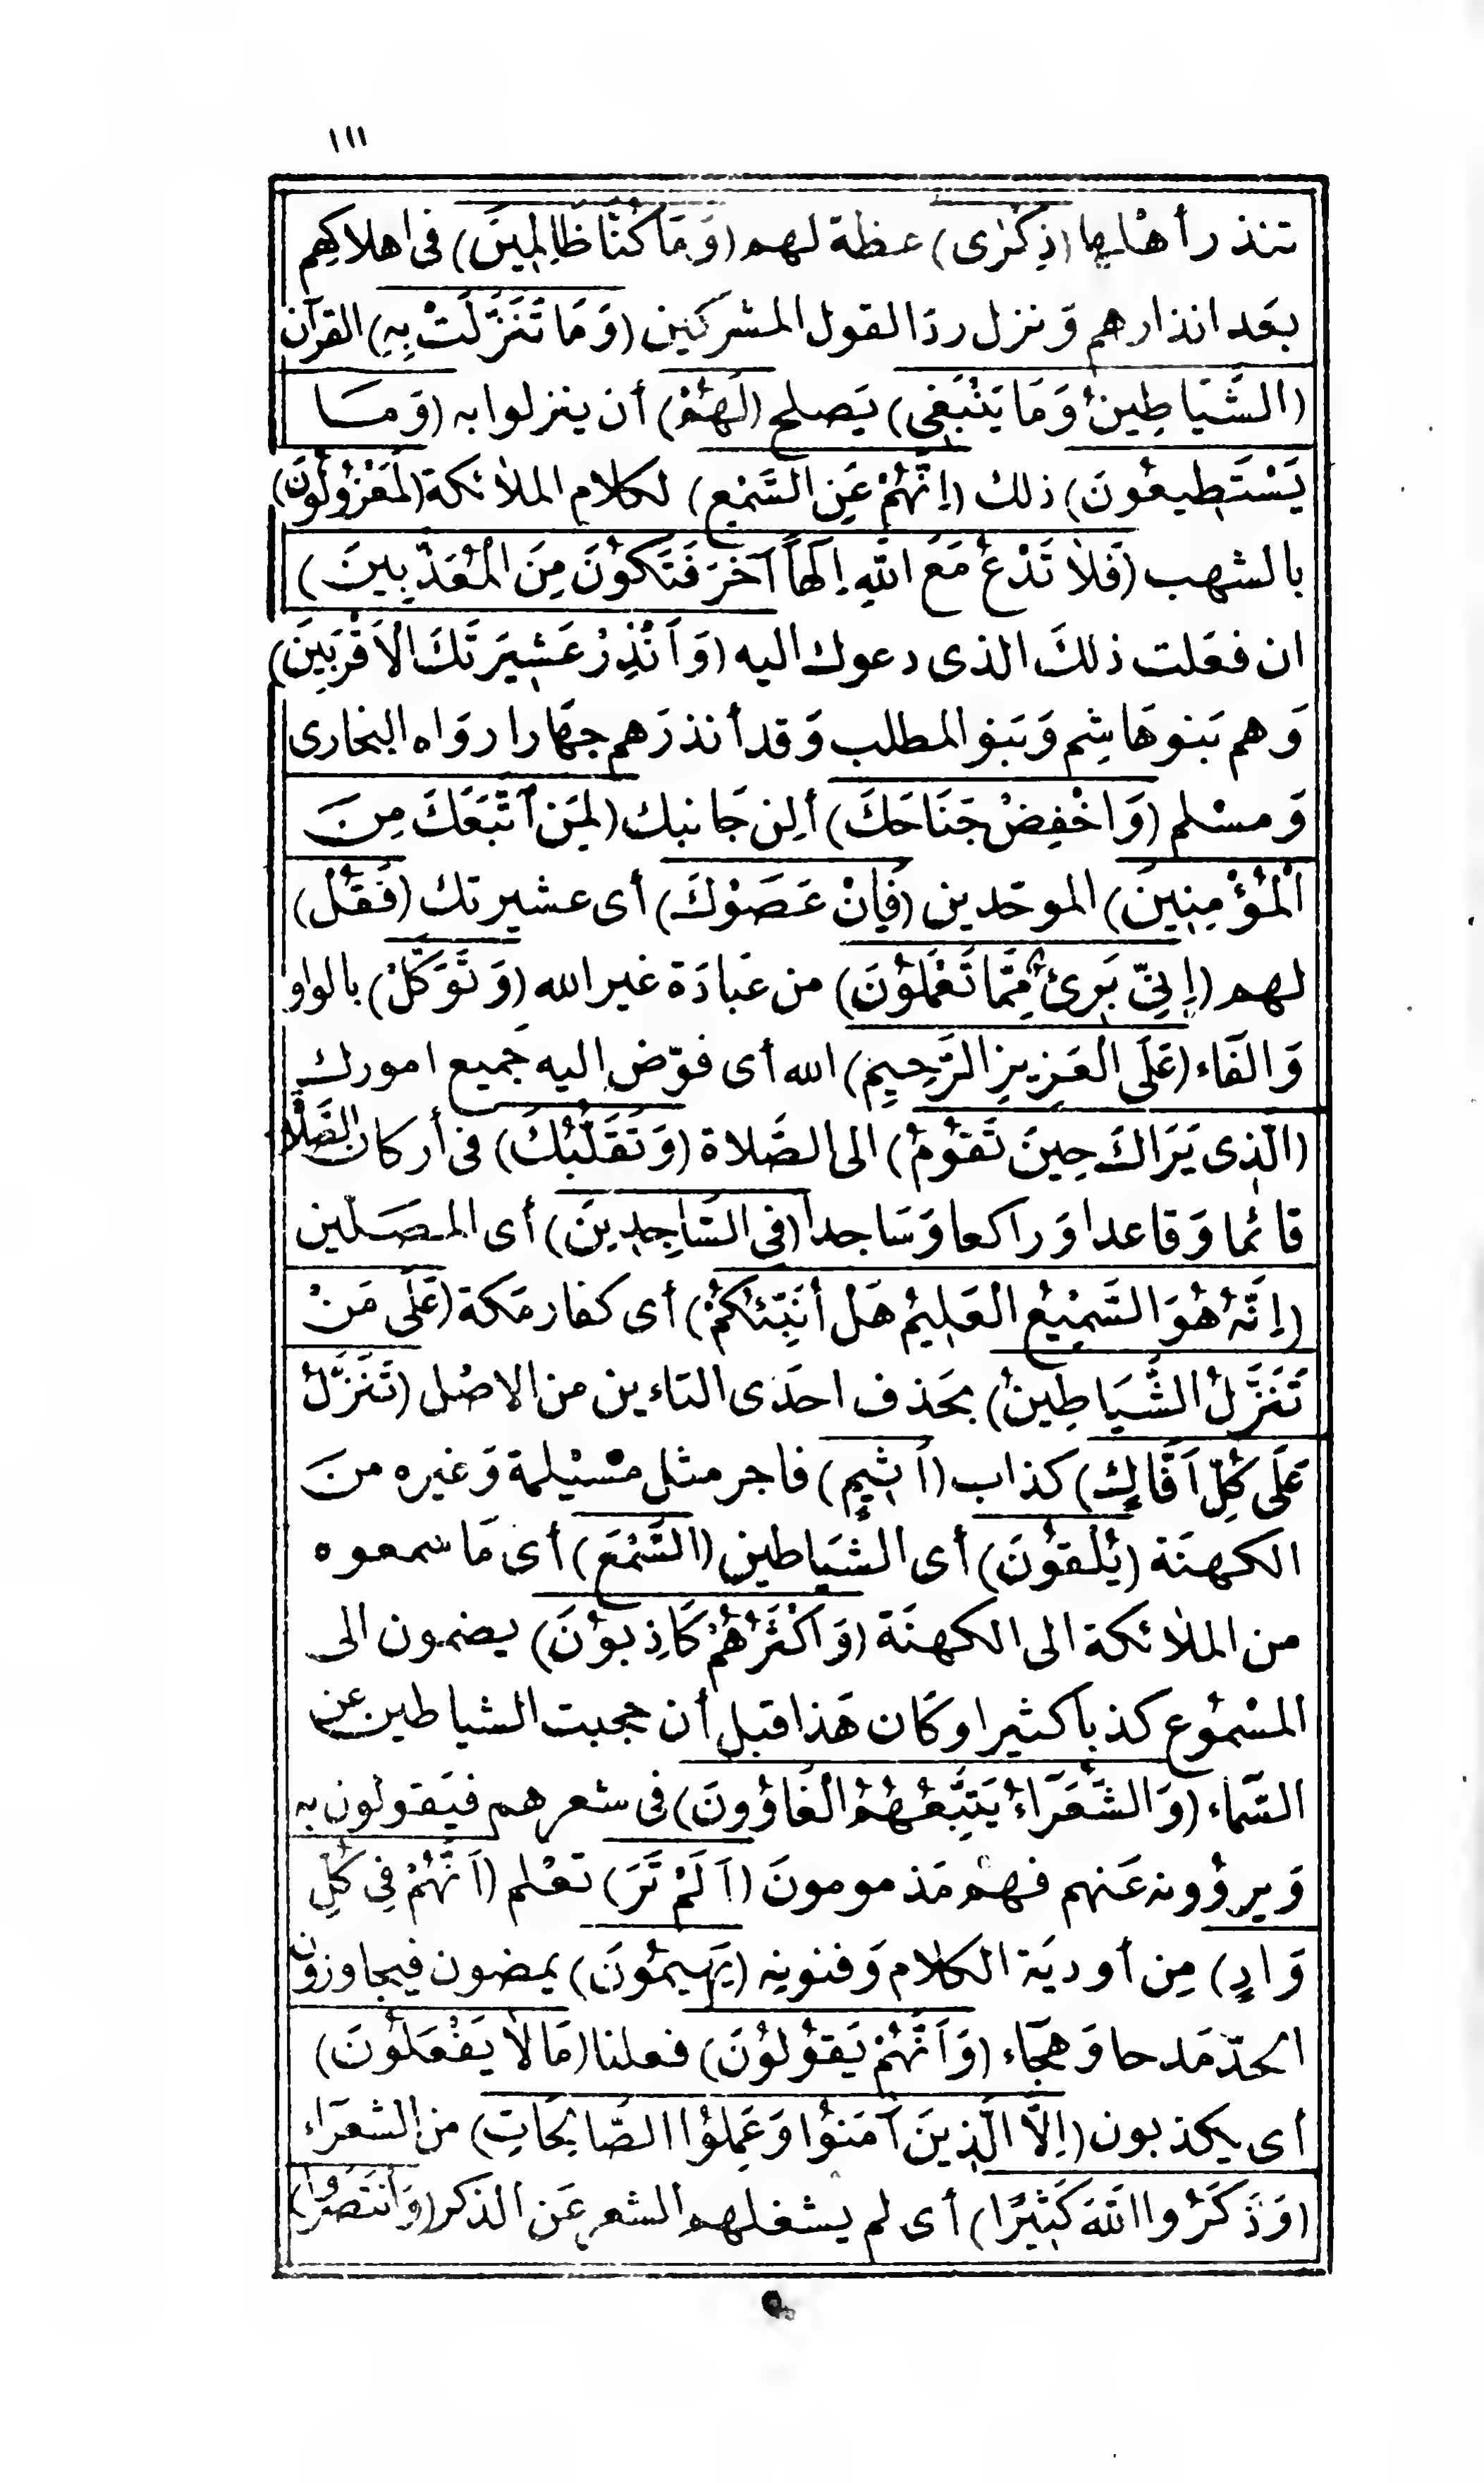 ١١١
تنذر أهلها (ذِكْرَى) عظة لهم (وَمَا كُنَّا ظَالِمِينَ) فى اهلاكهم
بعَد انذارهم وَنزل ردّا لقول المشركين (وَمَا تَنَزَّلَتْ بِهِ) القرآن
(الشَّيَاطِينُ وَمَا يَنْبَغِى) يَصلح (لَهُمْ) أن ينزلوا به (وَمَا
يَسْتَطِيعُونَ) ذلك (اِنَّهُمْ عَنِ السَّمْعِ) لكلام الملائكة (لَمَعْزُولُونَ)
بالشهب (فَلَا تَدْعُ مَعَ اللهِ اِلَهًا آخَرَ فَتَكُونَ مِنَ الْمُعَذَّبِينَ)
ان فعَلت ذلكَ الذى دعوك اليه (وَاَنْذِرْ عَشِيرَتَكَ الْاَقْرَبِينَ)
وَهم بَنو هَاشِم وَبَنو المطلب وَقد أنذرَهم جهَارا روَاه البخارى
وَمسْلم (وَاخْفِضْ جَنَاحَكَ) ألِن جَانبك (لِمَنِ اتَّبَعَكَ مِنَ
الْمُؤْمِنِينَ) الموحّدين (فَإِنْ عَصَوْكَ) أى عشيرتك (فَقُلْ)
لهم (إِنِّى بَرِىءٌ مِمَّا تَعْمَلُونَ) من عَبادَة غير الله (وَتَوَكَّلْ) بالواو
وَالفَاء (عَلَى الْعَزِيزِ الرَّحِيمِ) الله أى فوّض إليه جَميع امورك
(الَّذِى يَرَاكَ حِينَ تَقُومُ) الى الصَّلاة (وَتَقَلُّبَكَ) فى أركان الصَّلاة
قائما وَقاعدا وَراكعا وَسَاجدا (فِى السَّاجِدِينَ) أى المصَلّين
(اِنَّهُ هُوَ السَّمِيعُ الْعَلِيمُ هَلْ أُنَبِّئُكُمْ) أى كفار مَكة (عَلَى مَنْ
تَنَزَّلُ الشَّيَاطِينُ) بحَذف احدَى التاءين من الاصْل (تَنَزَّلُ
عَلَى كُلِّ اَفَّاكٍ) كذاب (اَثِيمٍ) فاجر مثل مسَيْلمة وَغيره منَ
الكهنَة (يُلْقُونَ) أى الشيَاطين (السَّمْعَ) أى مَا سمعوه
من الملائكة الى الكهنَة (وَاَكْثَرُهُمْ كَاذِبُونَ) يضمون الى
المسْمُوع كذبا كثيرا وكَان هَذا قبل أن حجبت الشياطين عن
السَّماء (وَالشُّعَرَاءُ يَتَّبِعُهُمُ الْغَاوُونَ) فى شعرهم فيَقولون به
وَيروُونه عَنهم فهمْ مَذمومونَ (اَلَمْ تَرَ) تعْلم (اَنَّهُمْ فِى كُلِّ
وَادٍ) مِن أوديَة الكلام وَفنونه (يَهِيمُونَ) يمضون فيجاوزون
الحدّ مَدحا وَهجَاء (وَاَنَّهُمْ يَقُولُونَ) فعلنا (مَا لَا يَفْعَلُونَ)
أى يكذبون (اِلَّا الَّذِينَ آمَنُوا وَعَمِلُوا الصَّالِحَاتِ) من الشعرَاء
(وَذَكَرُوا اللهَ كَثِيرًا) أى لم يشغلهم الشعر عَن الذكر (وَانْتَصَرُوا)